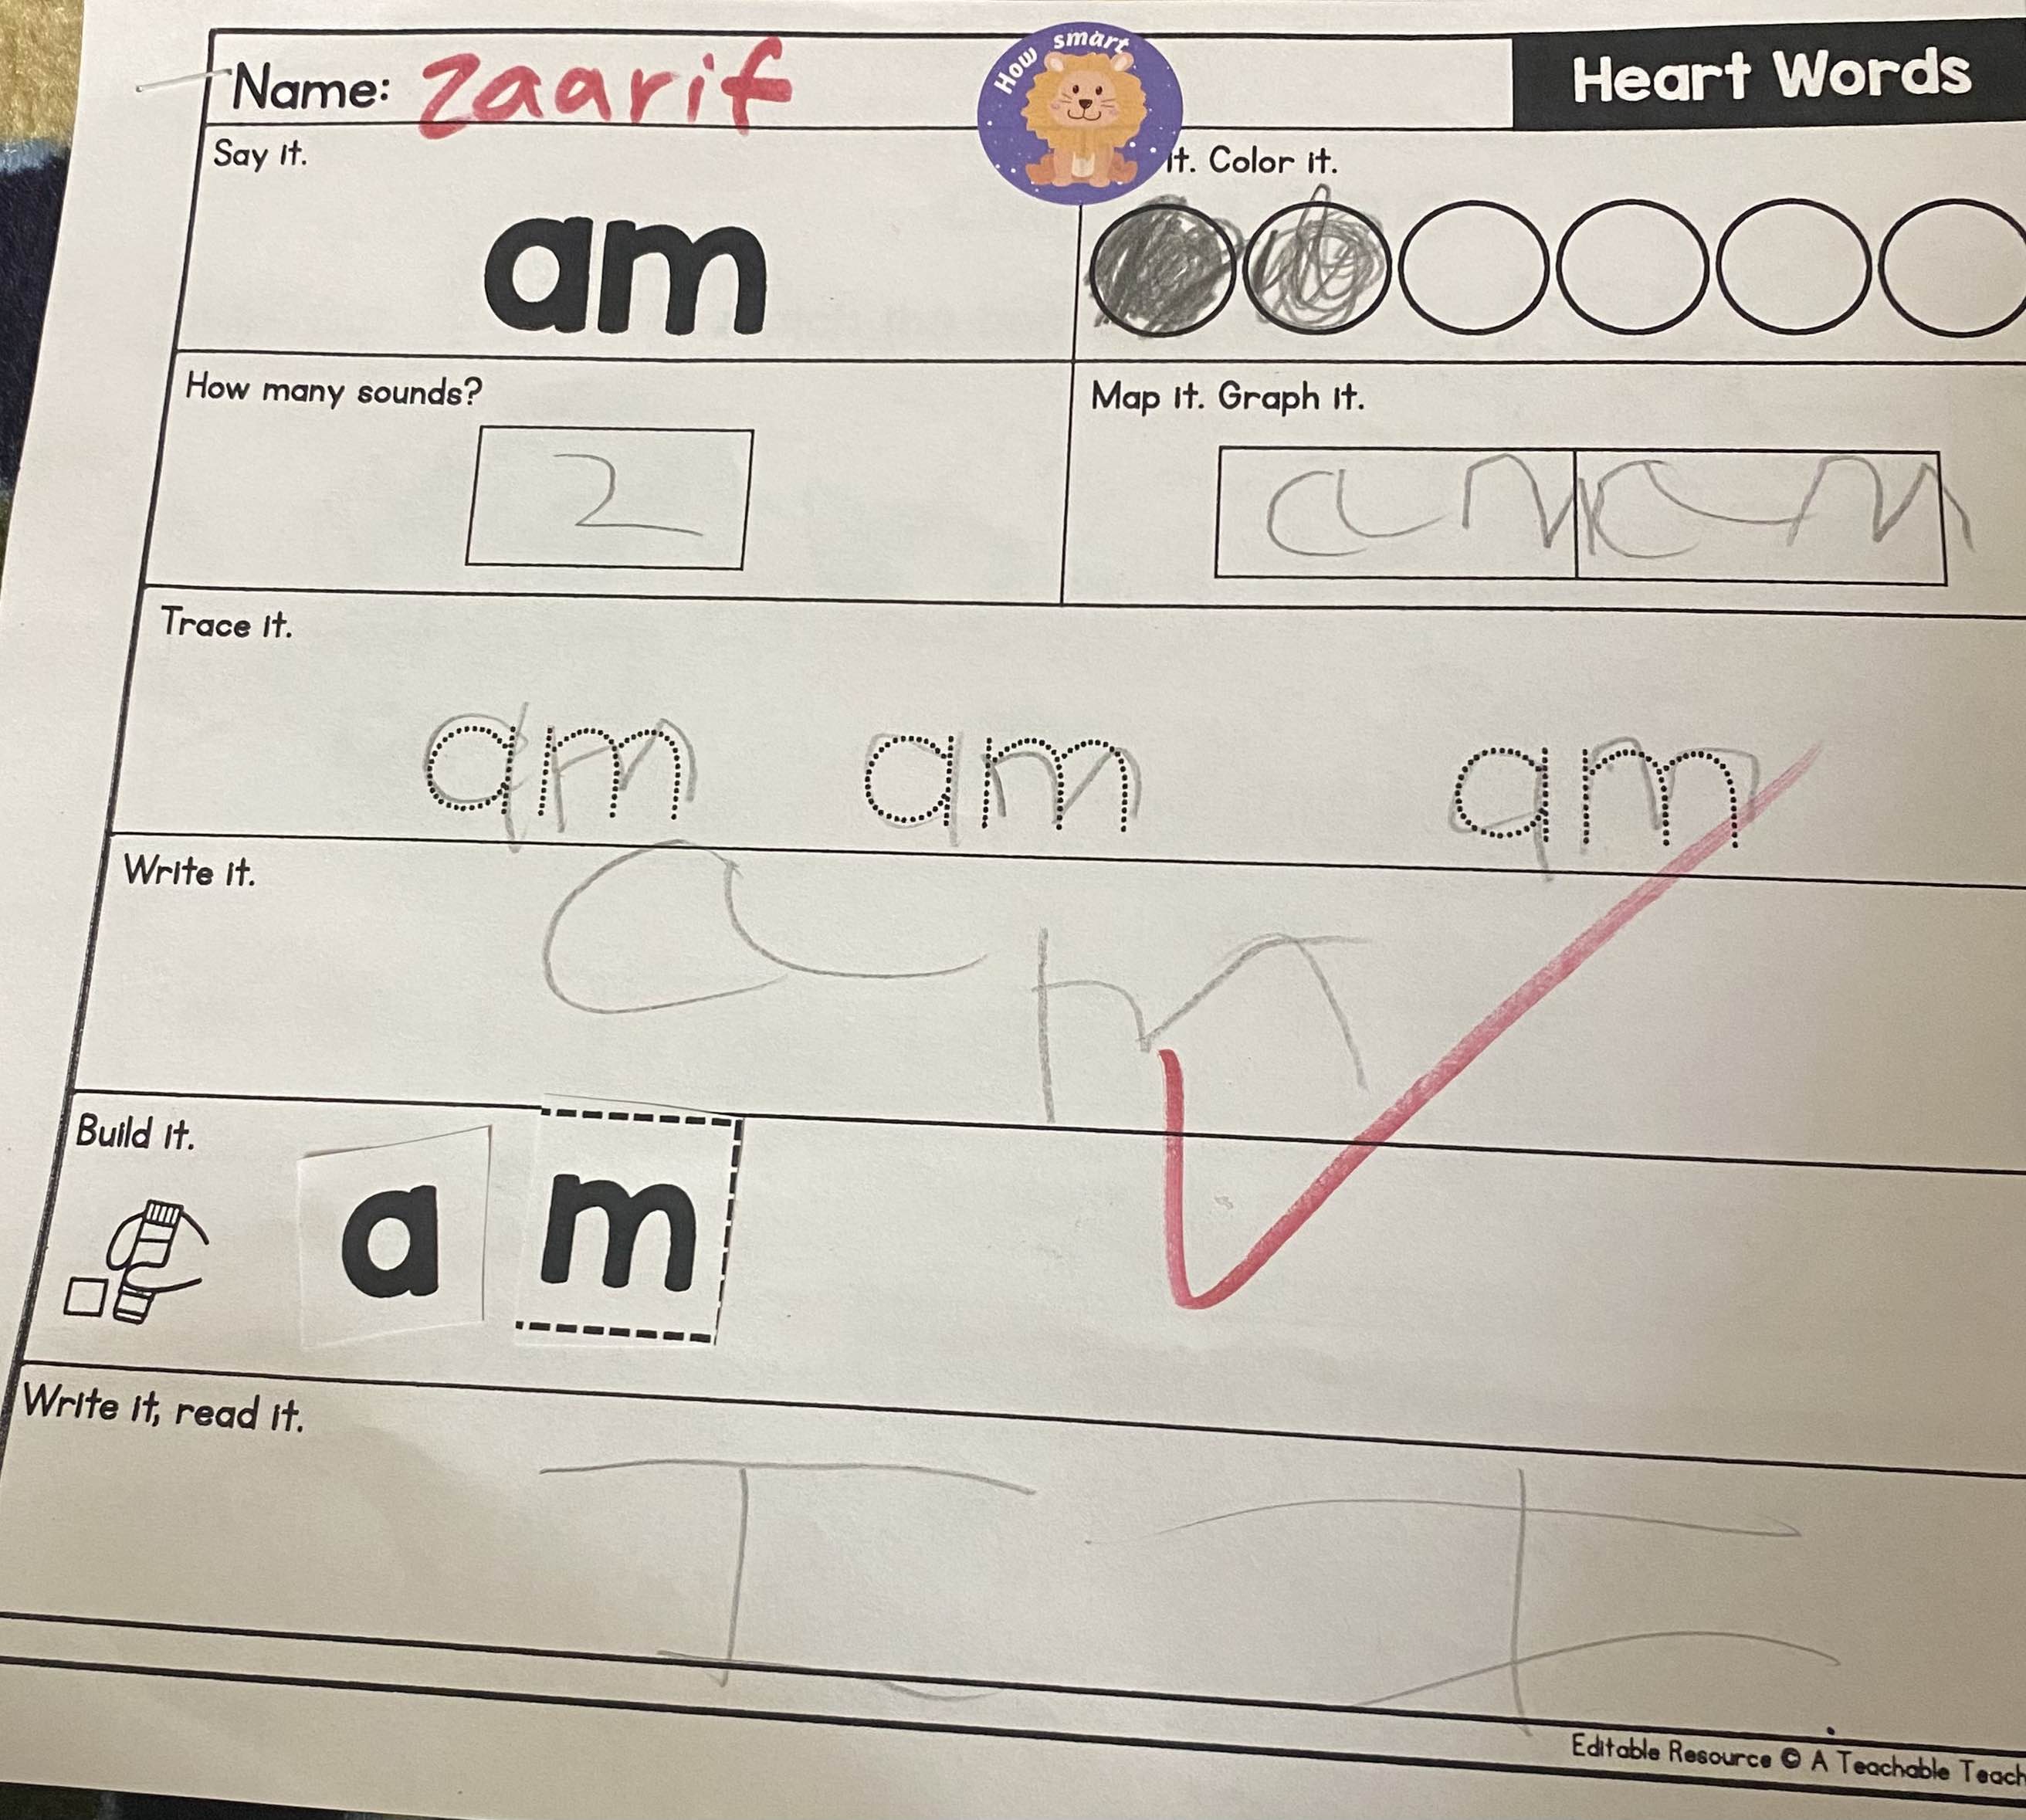 Name: zaarif
How smart
Heart Words
Say it.
it. Color it.
am
How many sounds?
Map it. Graph it.
2
am am
Trace it.
am am am
Write it.
am
Build it.
a m
Write it, read it.
I I
Editable Resource © A Teachable Teach